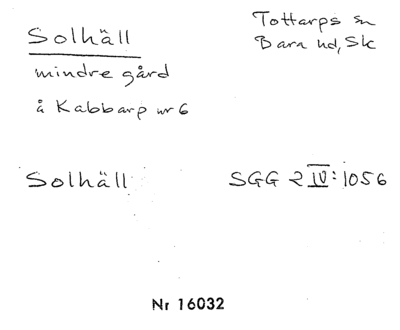 Solhäll
Tottarps sn
Bara hd, Sk
mindre gård
å Kabbarp nr 6
Solhäll
SGG 2 IV:1056
Nr 16032